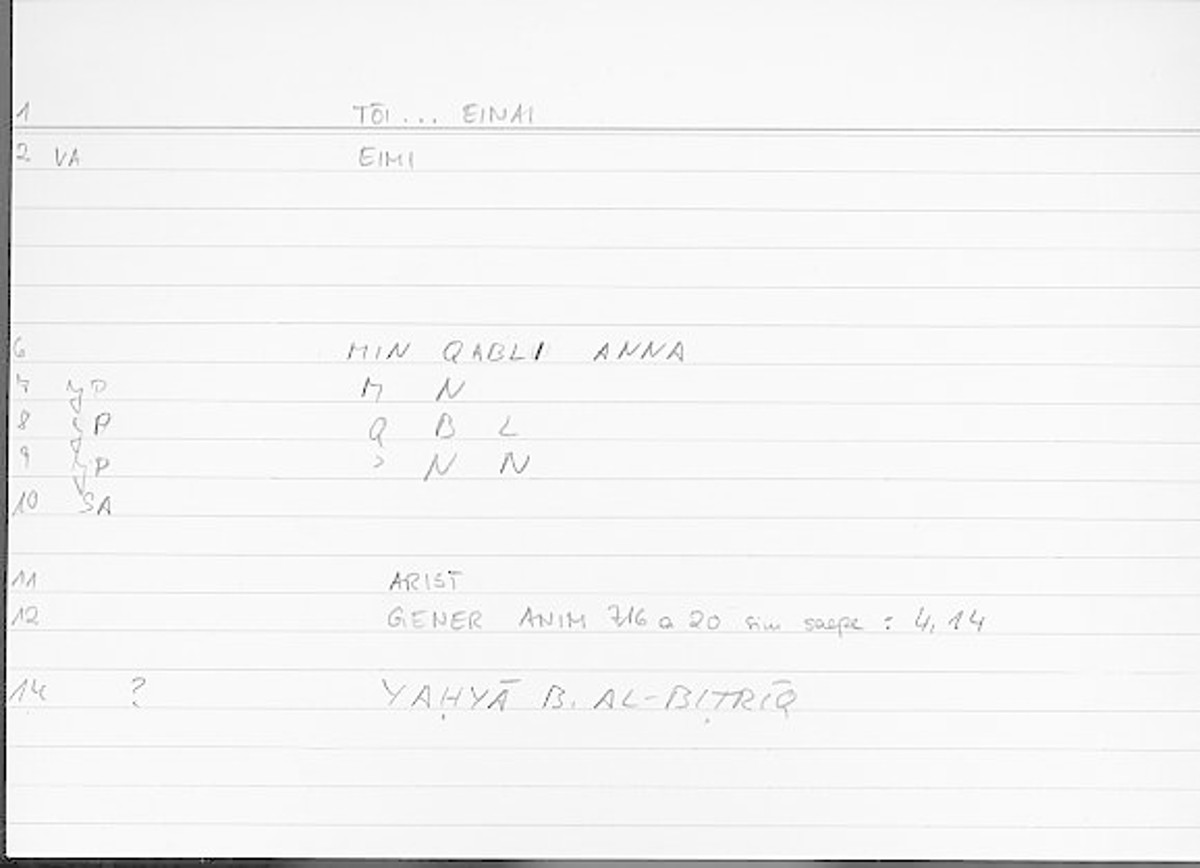 1 TŌI ... EINAI
2 VA EIMI
6 MIN QABLI ANNA
7 P M N
8 P Q B L
9 P ʾ N N
10 SA
11 ARIST
12 GENER ANIM 716 a 20 sim saepe : 4,14
14 ? YAḤYĀ B. AL-BIṬRĪQ